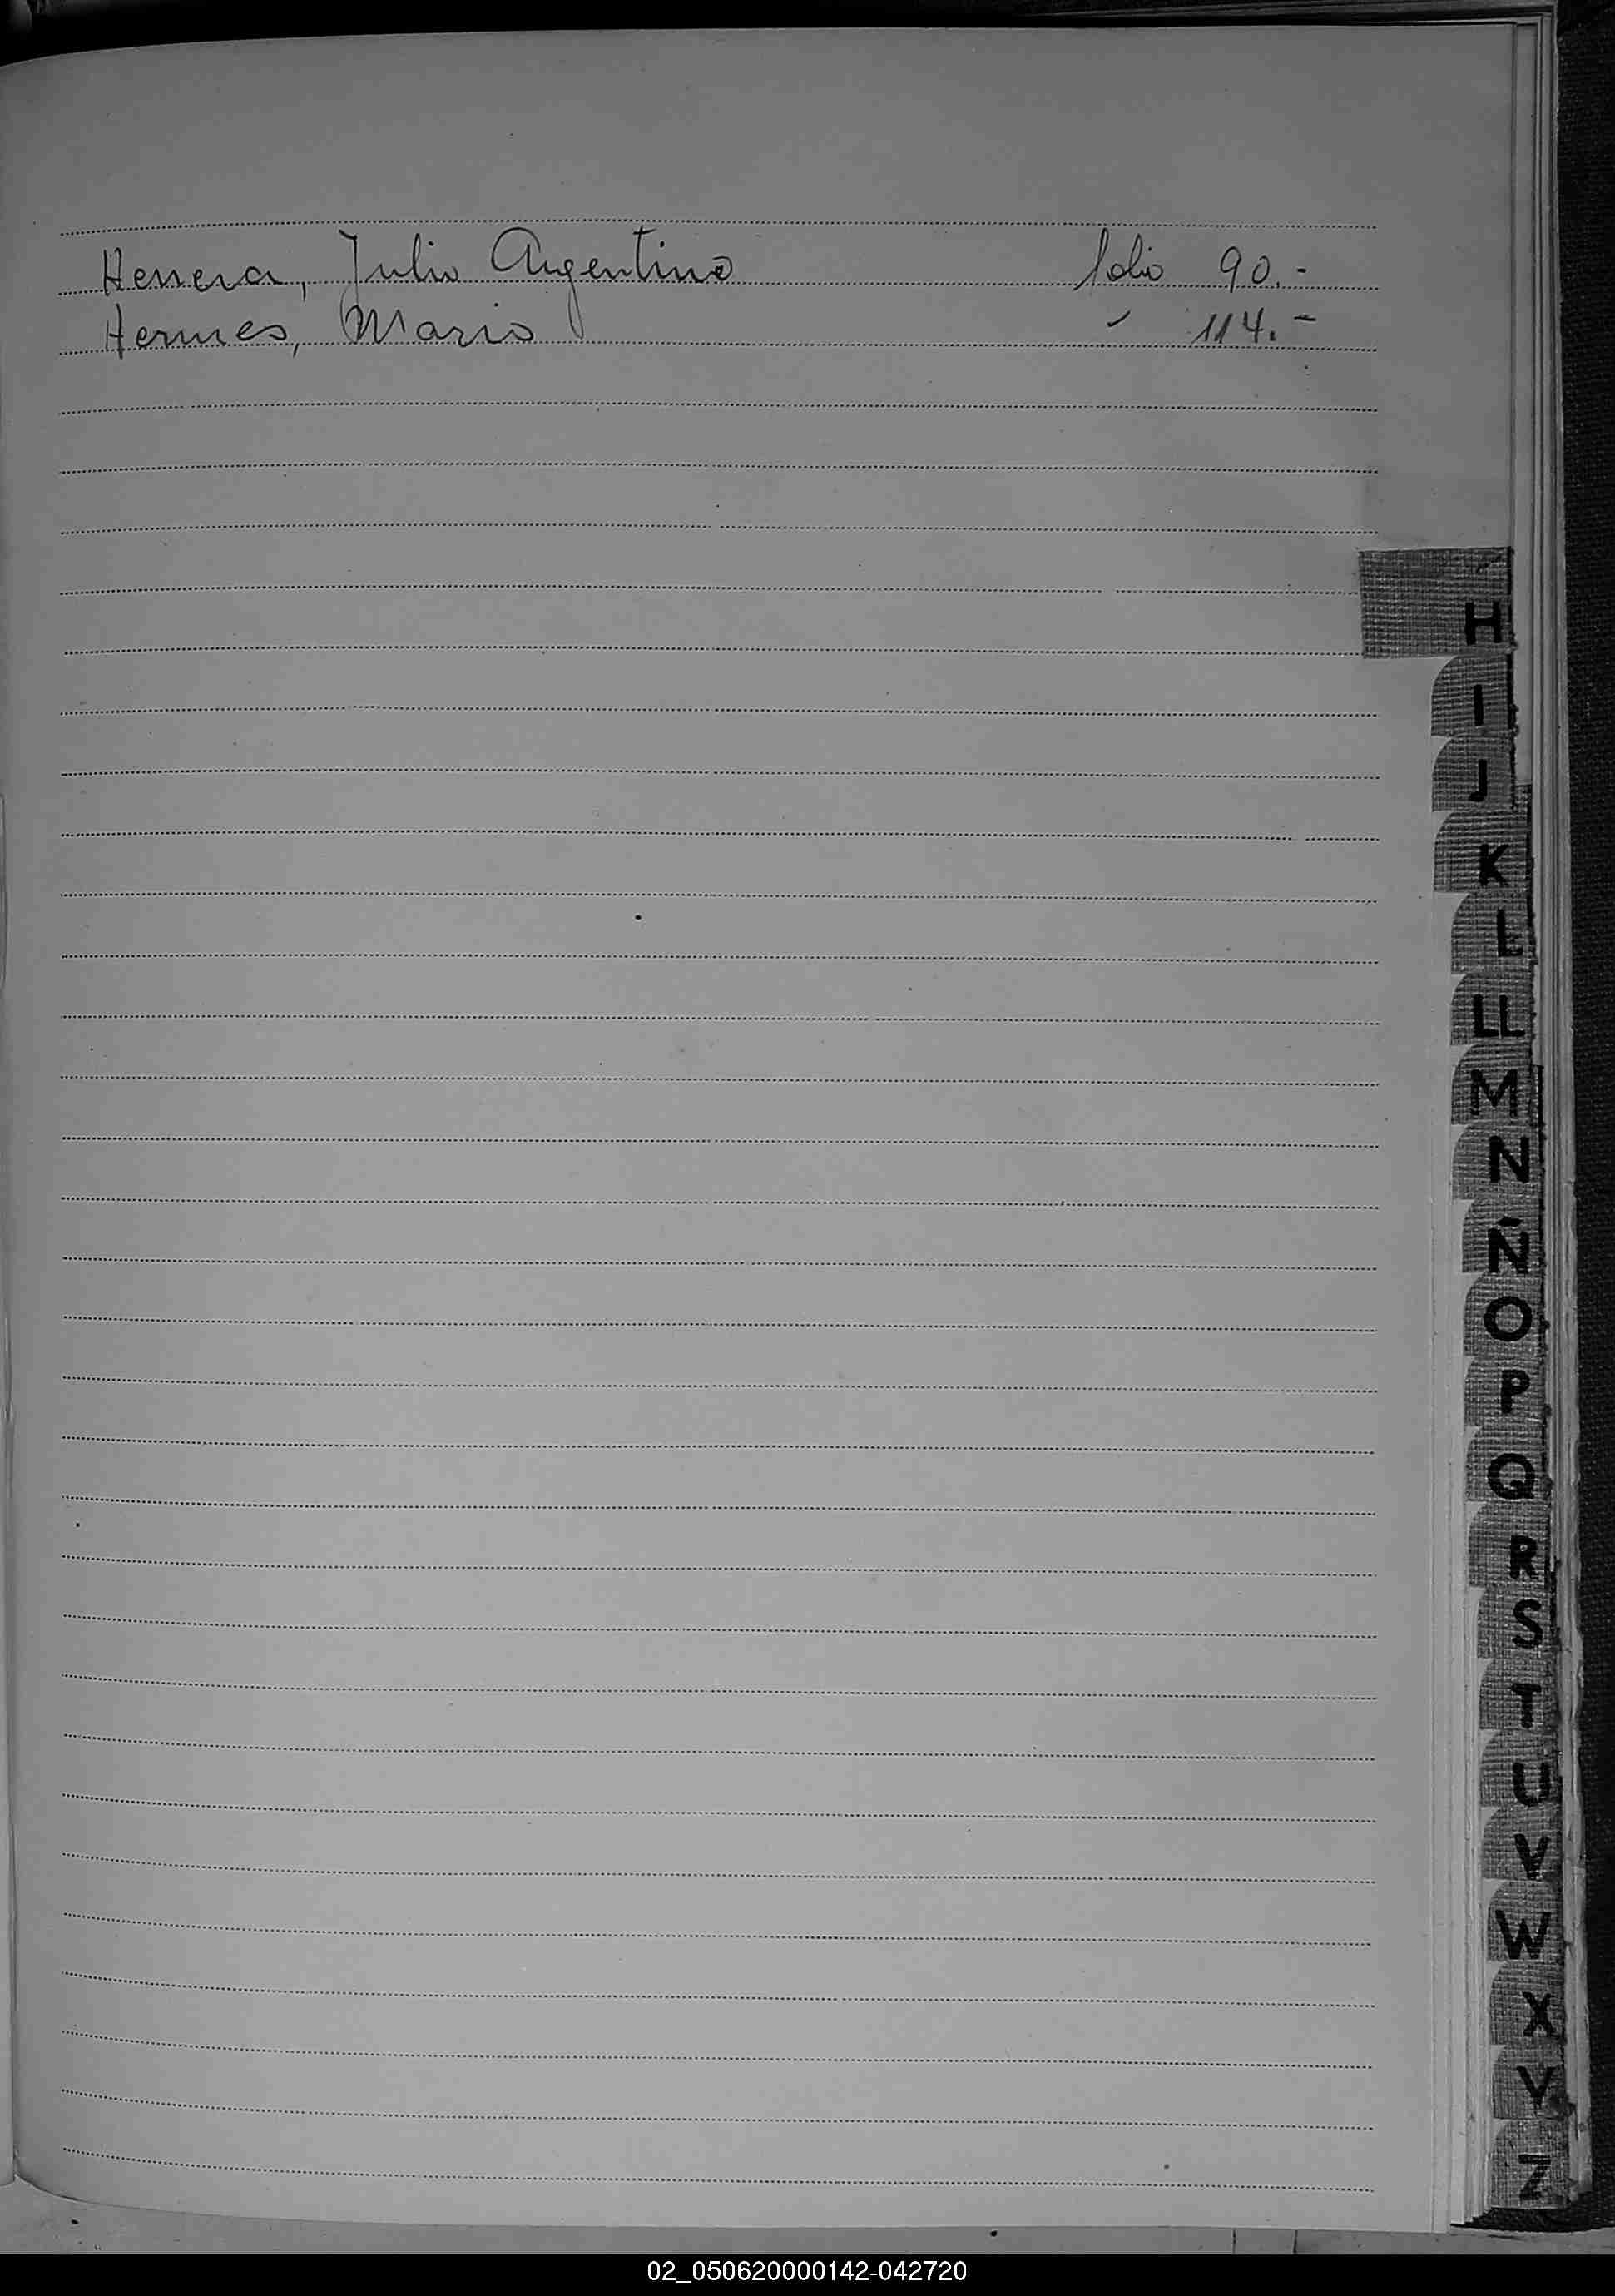 Herrera, Julio Argentino folio 90.-
Hermes, Mario " 114.-
H
I
J
K
L
LL
M
N
Ñ
O
P
Q
R
S
T
U
V
W
X
Y
Z
02_050620000142-042720